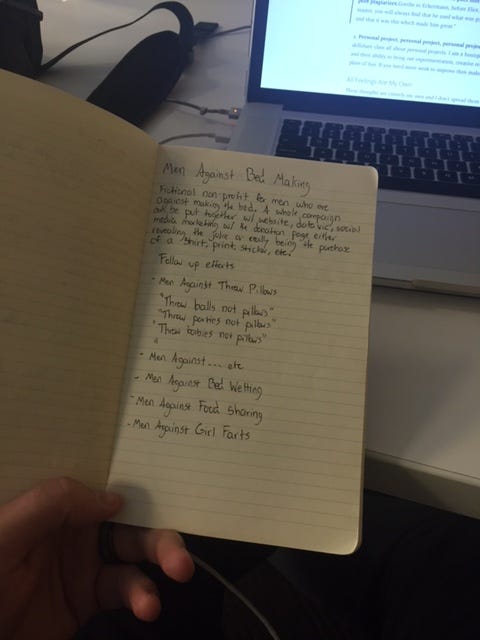 plan plagiarizes Goethe to Eckermann, before Eliot,
teams, you will always find that he used what was
and that it was this which made him great."
2. Personal project, personal project, personal proje
dilettant class all about personal projects. I am a
and their ability to bring out experimentation, creative
place of fun. If you need more work to improve then make
All Feelings Are My Own
These thoughts are entirely my own and I don't spread them
Men Against Bed Making
Fictional non-profit for men who are
against making the bed. A whole campaign
can be put together w/ website, data viz, social
media marketing w/ the donation page either
revealing the joke or really being the purchase
of a shirt, print, sticker, etc.
Follow up efforts
- Men Against Throw Pillows
"Throw balls not pillows"
"Throw parties not pillows"
"Throw babies not pillows"
"
- Men Against.... etc
- Men Against Bed Wetting
- Men Against Food Sharing
- Men Against Girl Farts